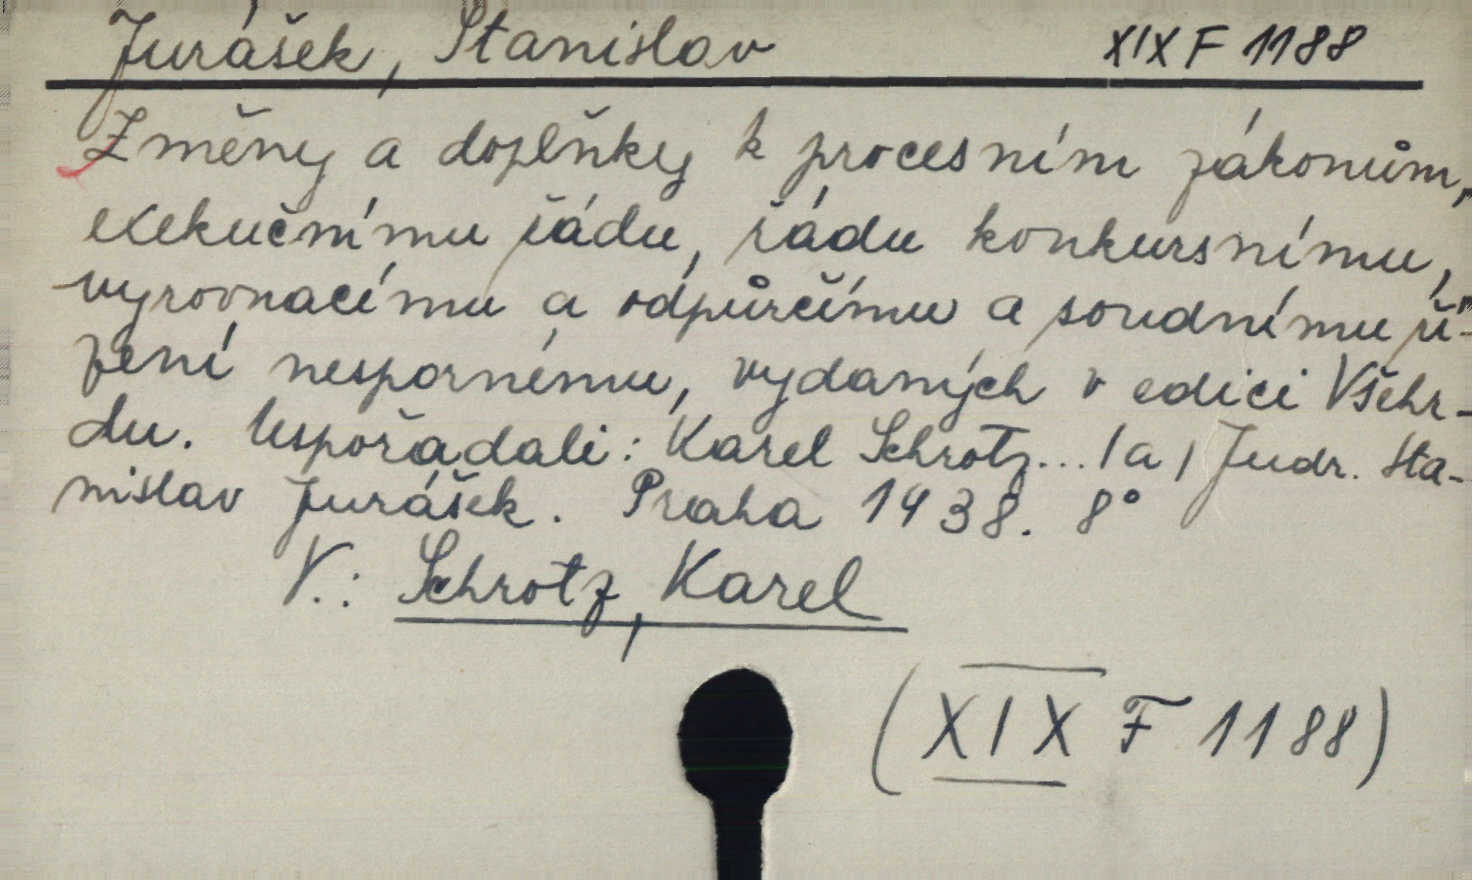 Jurášek, Stanislav XIX F 1188
Změny a doplňky k procesním zákonům,
exekučnímu řádu, řádu konkursnímu,
vyrovnacímu a odpůrčímu a soudnímu ří-
zení nespornému, vydaných v edici Všehr-
du. Uspořadali: Karel Schrotz... /a/ Judr. Sta-
nislav Jurášek. Praha 1938. 8°
V.: Schrotz, Karel
(XIX F 1188)